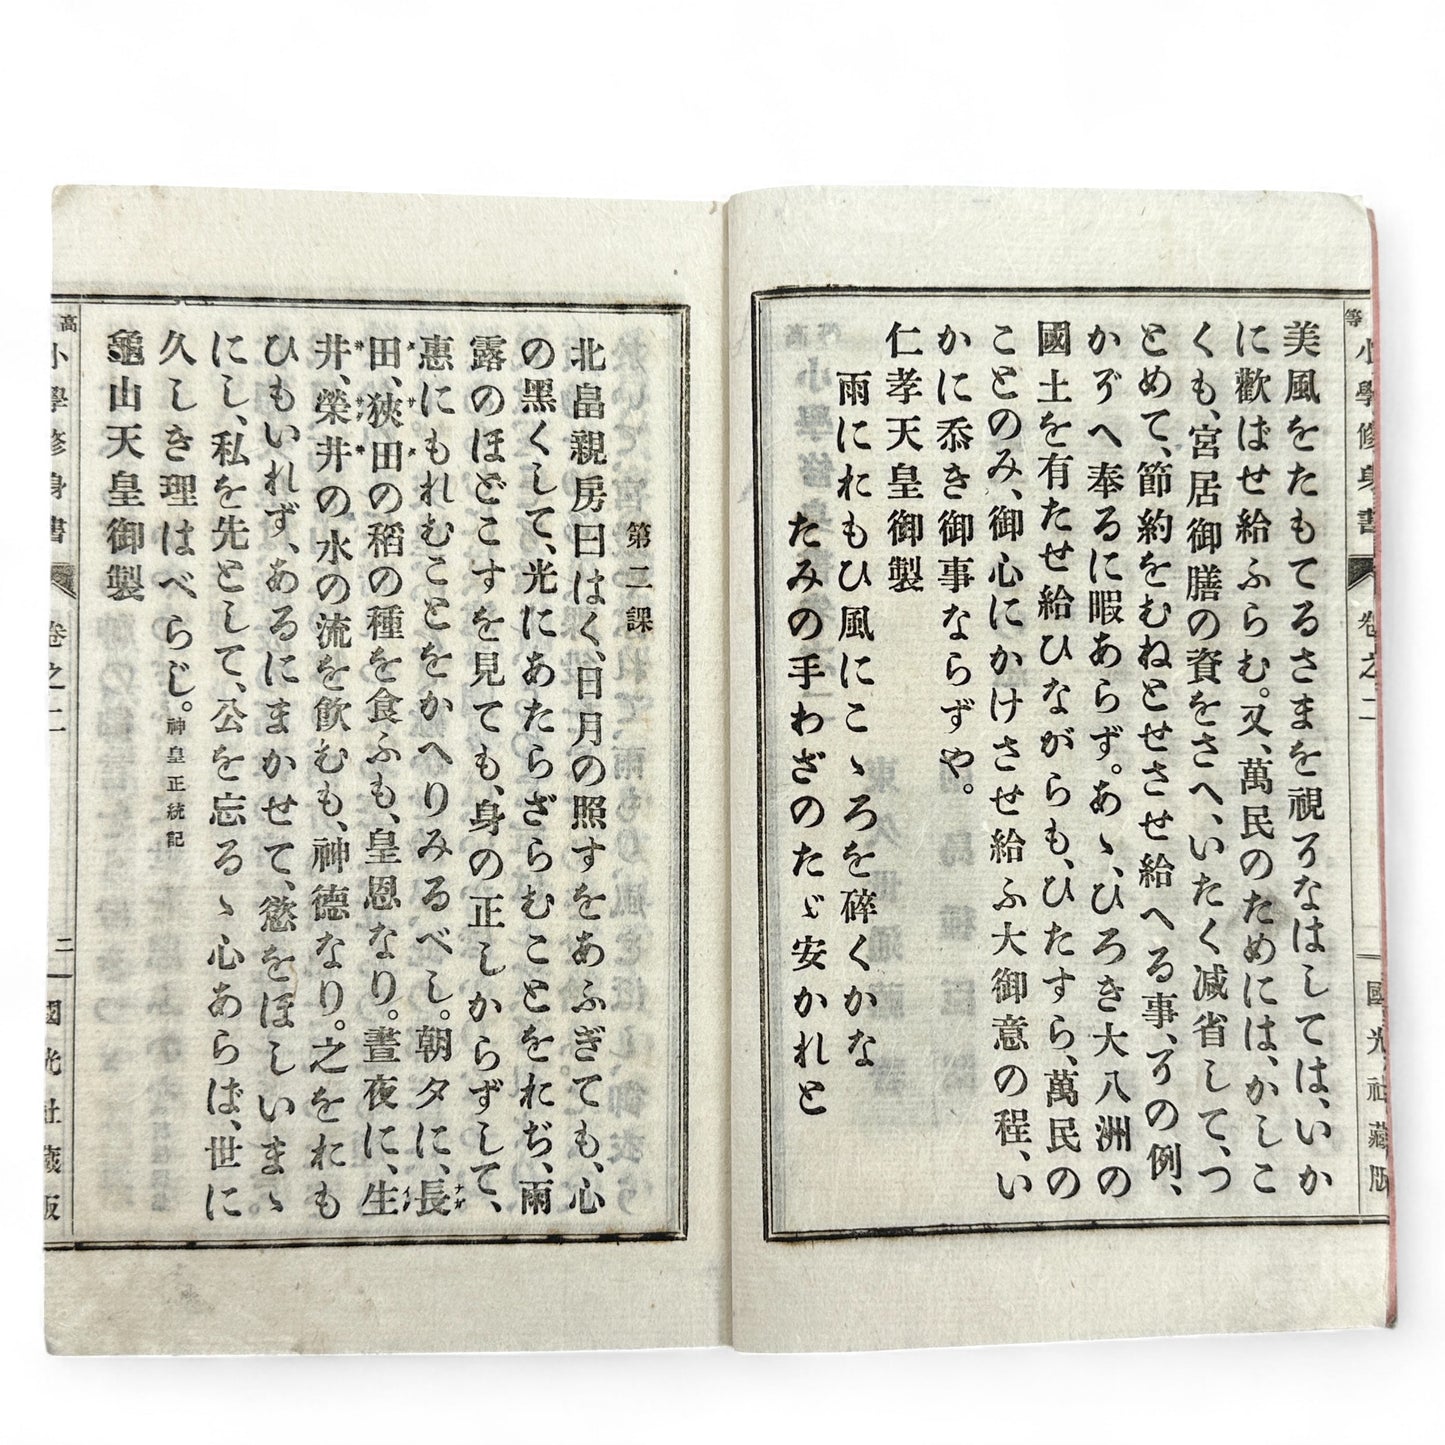 等
小學修身書
卷之二
一
國光社藏版
美風をたもてるさまを視そなはしては、いか
に歡ばせ給ふらむ。又、萬民のためには、かしこ
くも、宮居御膳の資をさへ、いたく减省して、つ
とめて、節約をむねとせさせ給へる事、その例、
かぞへ奉るに暇あらず。あゝ、ひろき大八洲の
國土を有たせ給ひながらも、ひたすら、萬民の
ことのみ、御心にかけさせ給ふ大御意の程、い
かに忝き御事ならずや。
仁孝天皇御製
雨におもひ風にこゝろを碎くかな
たみの手わざのたゞ安かれと
第二課
北畠親房曰はく、日月の照すをあふぎても、心
の黑くして、光にあたらざらむことをおぢ、雨
露のほどこすを見ても、身の正しからずして、
惠にもれむことをかへりみるべし。朝夕に、長
田、狹田の稻の種を食ふも、皇恩なり。晝夜に、生
井、榮井の水の流を飮むも、神德なり。之をおも
ひもいれず、あるにまかせて、慾をほしいまゝ
にし、私を先として、公を忘るゝ心あらば、世に
久しき理はべらじ。神皇正統記
龜山天皇御製
高
小學修身書
卷之二
二
國光社藏版